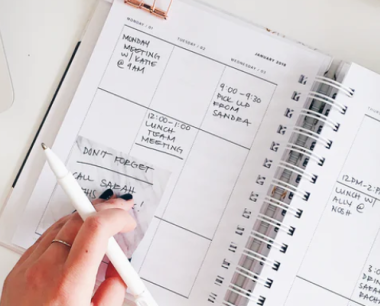 MONDAY / 01
TUESDAY / 02
WEDNESDAY / 03
JANUARY 2018
MONDAY
MEETING
W/ KATIE
@ 9AM
9:00-9:30
PICK UP
FROM
SANDRA
12:00-1:00
LUNCH
TEAM
MEETING
DON'T FORGET
CALL SARAH
THIS
12PM-
LUNCH W/
ALLY @
NOSH
DRIN
SARA